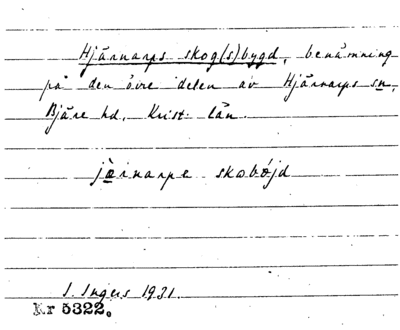 Hjärnarps skog(s)bygd, benämning
på den övre delen av Hjärnarps sn,
Bjäre hd, Krist. län.
jærnarpe skobøjd
I. Ingers 1931.
Nr 5322.